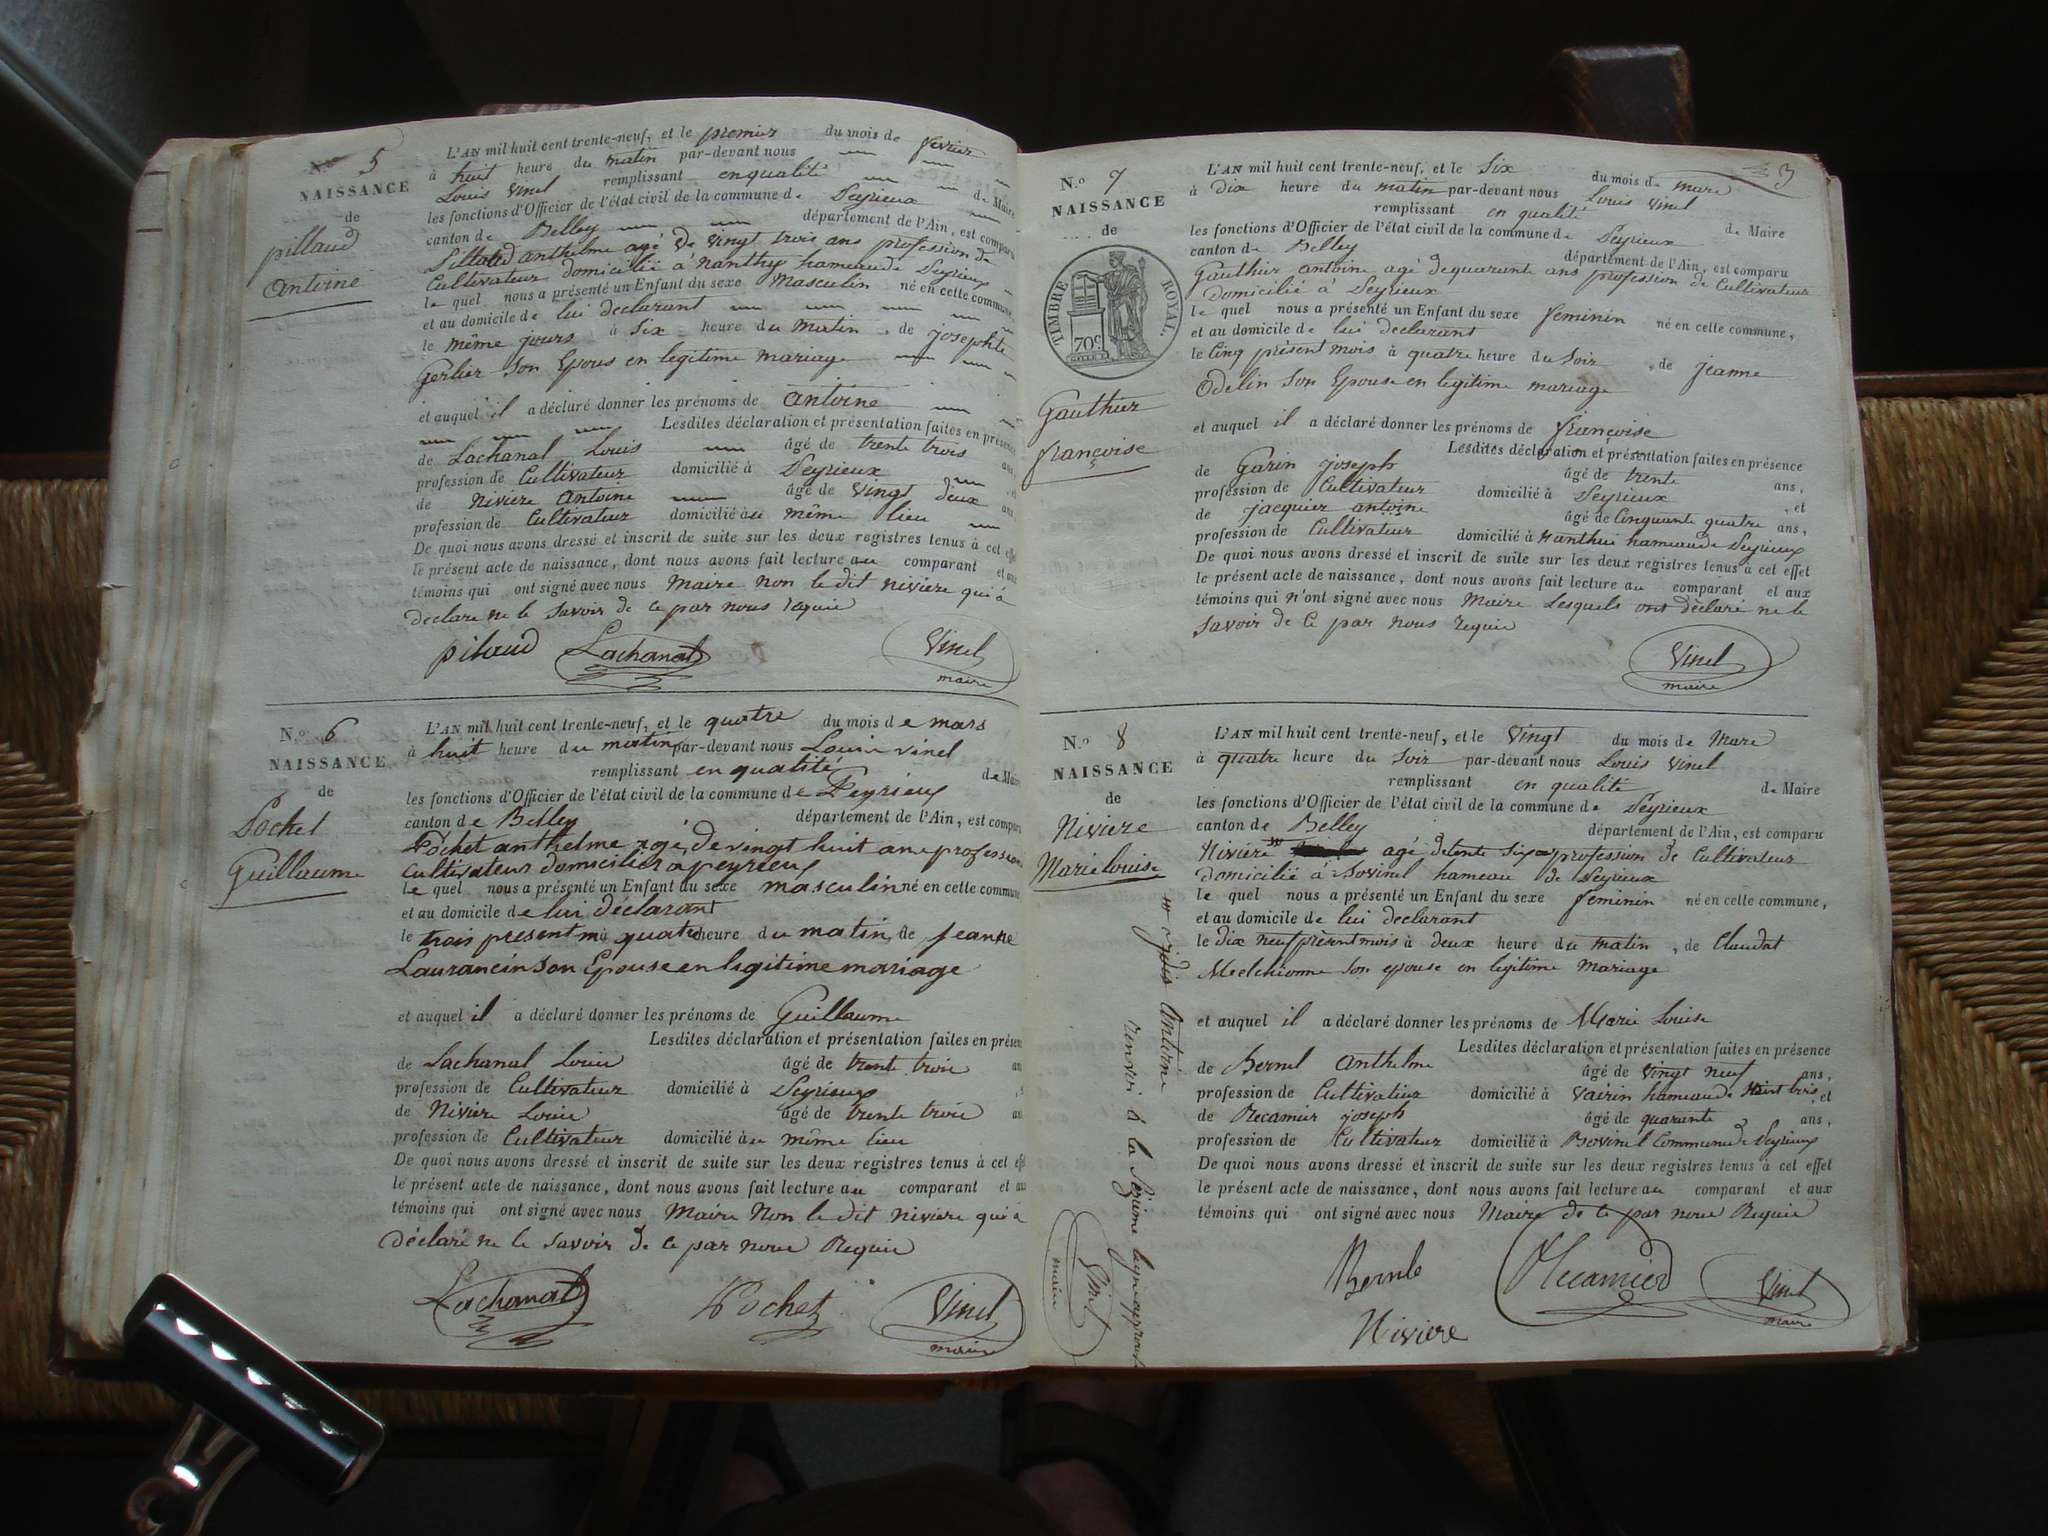 N.º 5
NAISSANCE
de
pillaud
Antoine
L'AN mil huit cent trente-neuf, et le premier du mois de fevrier
à huit heure du matin par-devant nous
Louis Vinel remplissant en qualité de Maire
les fonctions d'Officier de l'état civil de la commune de Peyrieux
canton de Belley département de l'Ain, est comparu
anthelme agé de vingt trois ans profession de
Cultivateur domicilié à Nanthy hameau de Peyrieux
le quel nous a présenté un Enfant du sexe Masculin né en cette commune,
et au domicile de lui declarant
le même jours à six heure du matin, de josephte
Gerlier son Epous en legitime mariage
et auquel il a déclaré donner les prénoms de Antoine
Lesdites déclaration et présentation faites en présence
de Lachanal Louis âgé de trente trois ans,
profession de Cultivateur domicilié à Peyrieux, et
de Niviere Antoine âgé de vingt deux ans,
profession de Cultivateur domicilié au même lieu
De quoi nous avons dressé et inscrit de suite sur les deux registres tenus à cet effet
le présent acte de naissance, dont nous avons fait lecture au comparant et aux
témoins qui ont signé avec nous Maire non le dit niviere qui à
declare ne le savoir de ce par nous requis
pilaud Lachanal Vinel
maire
N.º 6
NAISSANCE
de
Pochet
Guillaume
L'AN mil huit cent trente-neuf, et le quatre du mois de mars
à huit heure du matin par-devant nous Louis vinel
remplissant en qualité de Maire
les fonctions d'Officier de l'état civil de la commune de Peyrieux
canton de Belley département de l'Ain, est comparu
Pochet anthelme agé de vingt huit ans profession
cultivateur domicilier a peyrieux
le quel nous a présenté un Enfant du sexe masculin né en cette commune
et au domicile de lui déclarant
le trois present m à quatre heure du matin, de jeanne
Laurancin son Epouse en legitime mariage
et auquel il a déclaré donner les prénoms de Guillaume
Lesdites déclaration et présentation faites en présen
de Lachanal Louis âgé de trente trois an
profession de Cultivateur domicilié à Peyrieux
de Niviere Louis âgé de trente trois an
profession de Cultivateur domicilié au même lieu
De quoi nous avons dressé et inscrit de suite sur les deux registres tenus à cet effet
le présent acte de naissance, dont nous avons fait lecture au comparant et aux
témoins qui ont signé avec nous Maire Non le dit niviere qui a
déclaré ne le savoir de ce par nous Requis
Lachanal Pochet Vinel
maire
3
N.º 7
NAISSANCE
de
TIMBRE ROYAL.
70c
Gauthier
françoise
L'AN mil huit cent trente-neuf, et le six du mois de mars
à dix heure du matin par-devant nous Louis Vinel
remplissant en qualité de Maire
les fonctions d'Officier de l'état civil de la commune de Peyrieux
canton de Belley département de l'Ain, est comparu
Gauthier antoine agé de quarante ans profession de Cultivateur
domicilié à Peyrieux
le quel nous a présenté un Enfant du sexe feminin né en cette commune,
et au domicile de lui declarant
le Cinq présent mois à quatre heure du soir, de jeanne
Odelin son Epouse en legitime mariage
et auquel il a déclaré donner les prénoms de françoise
Lesdites déclaration et présentation faites en présence
de Garin joseph âgé de trente ans,
profession de Cultivateur domicilié à Peyrieux, et
de jacquier antoine âgé de Cinquante quatre ans,
profession de Cultivateur domicilié à Nanthui hameau de Peyrieux
De quoi nous avons dressé et inscrit de suite sur les deux registres tenus à cet effet
le présent acte de naissance, dont nous avons fait lecture au comparant et aux
témoins qui n'ont signé avec nous Maire Lesquels ont déclaré ne le
savoir de ce par nous requis
Vinel
maire
N.º 8
NAISSANCE
de
Niviere
Marie Louise
Antoine
renvoi à la
Vinel
maire
L'AN mil huit cent trente-neuf, et le vingt du mois de Mars
à quatre heure du soir par-devant nous Louis Vinel
remplissant en qualité de Maire
les fonctions d'Officier de l'état civil de la commune de Peyrieux
canton de Belley département de l'Ain, est comparu
Niviére agé de trente six profession de Cultivateur
domicilié à Bovinel hameau de Peyrieux
le quel nous a présenté un Enfant du sexe feminin né en cette commune,
et au domicile de lui declarant
le dix neuf présent mois à deux heure du matin, de Claudat
Melchionne son epouse en legitime Mariage
et auquel il a déclaré donner les prénoms de Marie Louise
Lesdites déclaration et présentation faites en présence
de Bernel Anthelme âgé de vingt neuf ans,
profession de Cultivateur domicilié à hameau de, et
de Recamier joseph âgé de quarante ans,
profession de Cultivateur domicilié à Bovinel Commune de Peyrieux
De quoi nous avons dressé et inscrit de suite sur les deux registres tenus à cet effet
le présent acte de naissance, dont nous avons fait lecture au comparant et aux
témoins qui ont signé avec nous Maire de ce par nous Requis
Bernle Recamier Vinel
maire
Niviere